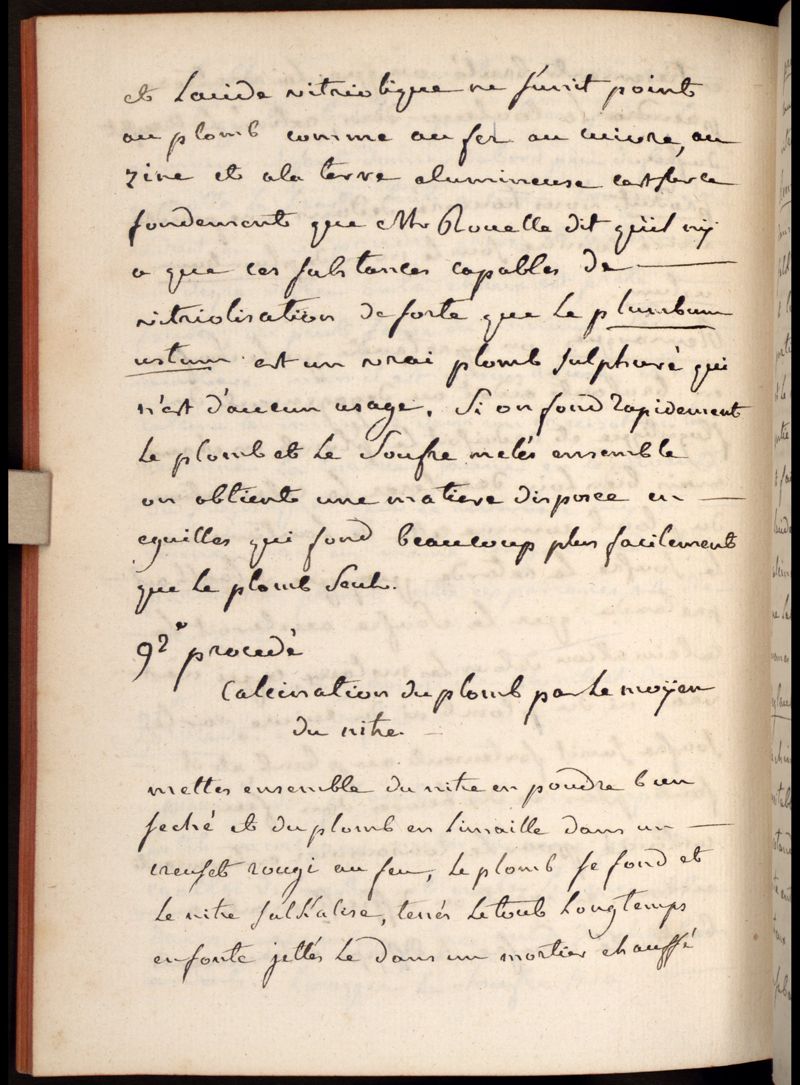 et L'acide vitriolique ne s'unit point
au plomb comme au fer au cuivre, au
zinc et a la terre alumineuse cest sur ce
fondement que Mr Rouelle dit qu'il n'ÿ
a que ces substances capables de
vitriolisation de sorte que Le plumbum
ustum est un vrai plomb sulphuré qui
n'est d'aucun usage. Si on fond rapidement
Le plomb et Le Soufre melés ensemble
on obtient une matiere disposee en
eguilles qui fond beaucoup plus facilement
que Le plomb Seul.
92e procedé
Calcination du plomb par Le moÿen
du nitre
mettes ensemble du nitre en poudre bien
seché et du plomb en Limaille dans un
creuset rougi au feu, Le plomb se fond et
Le nitre s'alkalise, tenés Le tout Longtemps
en fonte jettés Le dans un mortier chauffé